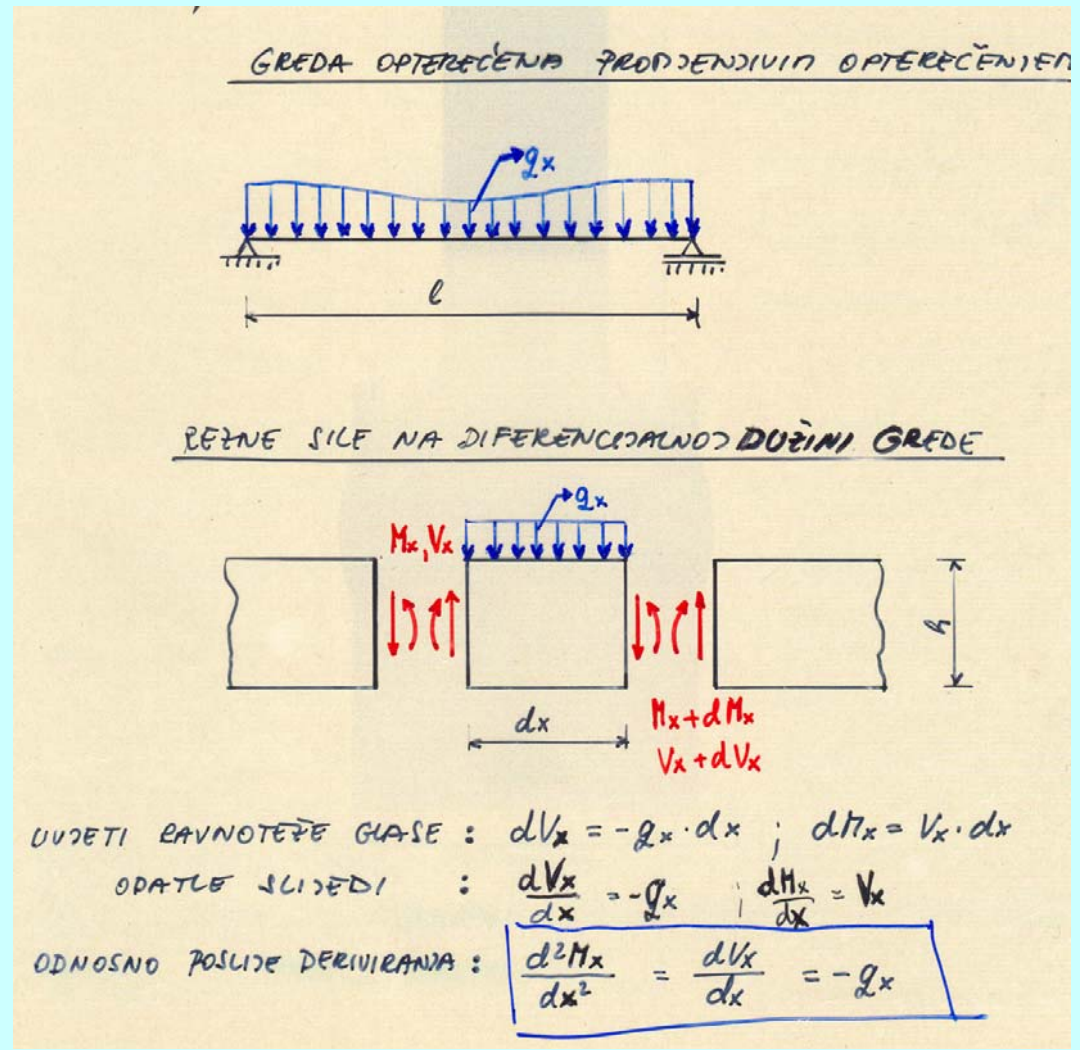 GREDA OPTEREĆENA PROMJENJIVIM OPTEREČENJEM
qx
l
REZNE SILE NA DIFERENCIJALNOJ DUŽINI GREDE
qx
Mx, Vx
h
dx
Mx + dMx
Vx + dVx
UVJETI RAVNOTEŽE GLASE : dVx = -qx · dx ; dMx = Vx · dx
ODATLE SLIJEDI : dVx/dx = -qx ; dMx/dx = Vx
ODNOSNO POSLIJE DERIVIRANJA : d²Mx/dx² = dVx/dx = -qx